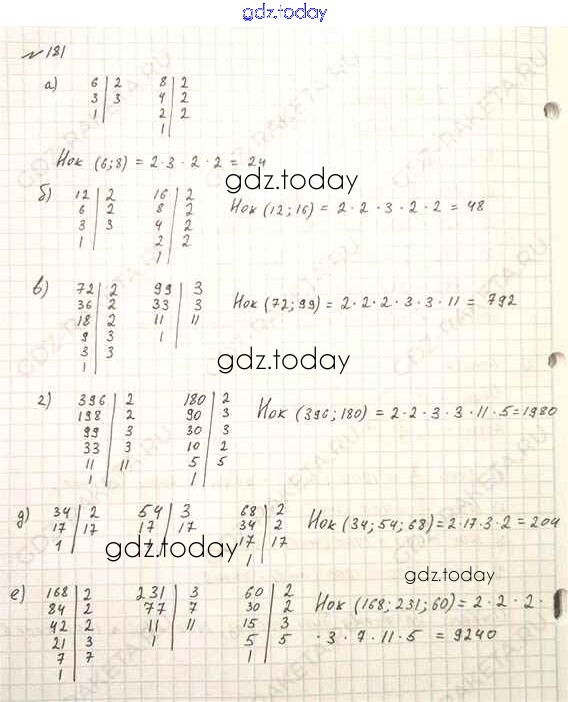 gdz.today
№ 181
а) 6 | 2   8 | 2
3 | 3   4 | 2
1 |   2 | 2
1 |
Нок (6;8) = 2·3·2·2 = 24
gdz.today
б) 12 | 2   16 | 2   Нок (12; 16) = 2·2·3·2·2 = 48
6 | 2   8 | 2
3 | 3   4 | 2
1 |   2 | 2
1 |
в) 72 | 2   99 | 3   Нок (72; 99) = 2·2·2·3·3·11 = 792
36 | 2   33 | 3
18 | 2   11 | 11
9 | 3   1 |
3 | 3
1 |
gdz.today
г) 396 | 2   180 | 2   Нок (396; 180) = 2·2·3·3·11·5 = 1980
198 | 2   90 | 3
99 | 3   30 | 3
33 | 3   10 | 2
11 | 11   5 | 5
1 |   1 |
д) 34 | 2   54 | 3   68 | 2   Нок (34; 54; 68) = 2·17·3·2 = 204
17 | 17   17 | 17   34 | 2
1 |   17 | 17
1 |
gdz.today
gdz.today
е) 168 | 2   231 | 3   60 | 2   Нок (168; 231; 60) = 2·2·2·
84 | 2   77 | 7   30 | 2   ·3·7·11·5 = 9240
42 | 2   11 | 11   15 | 3
21 | 3   1 |   5 | 5
7 | 7   1 |
1 |
GDZ-RAKETA.RU